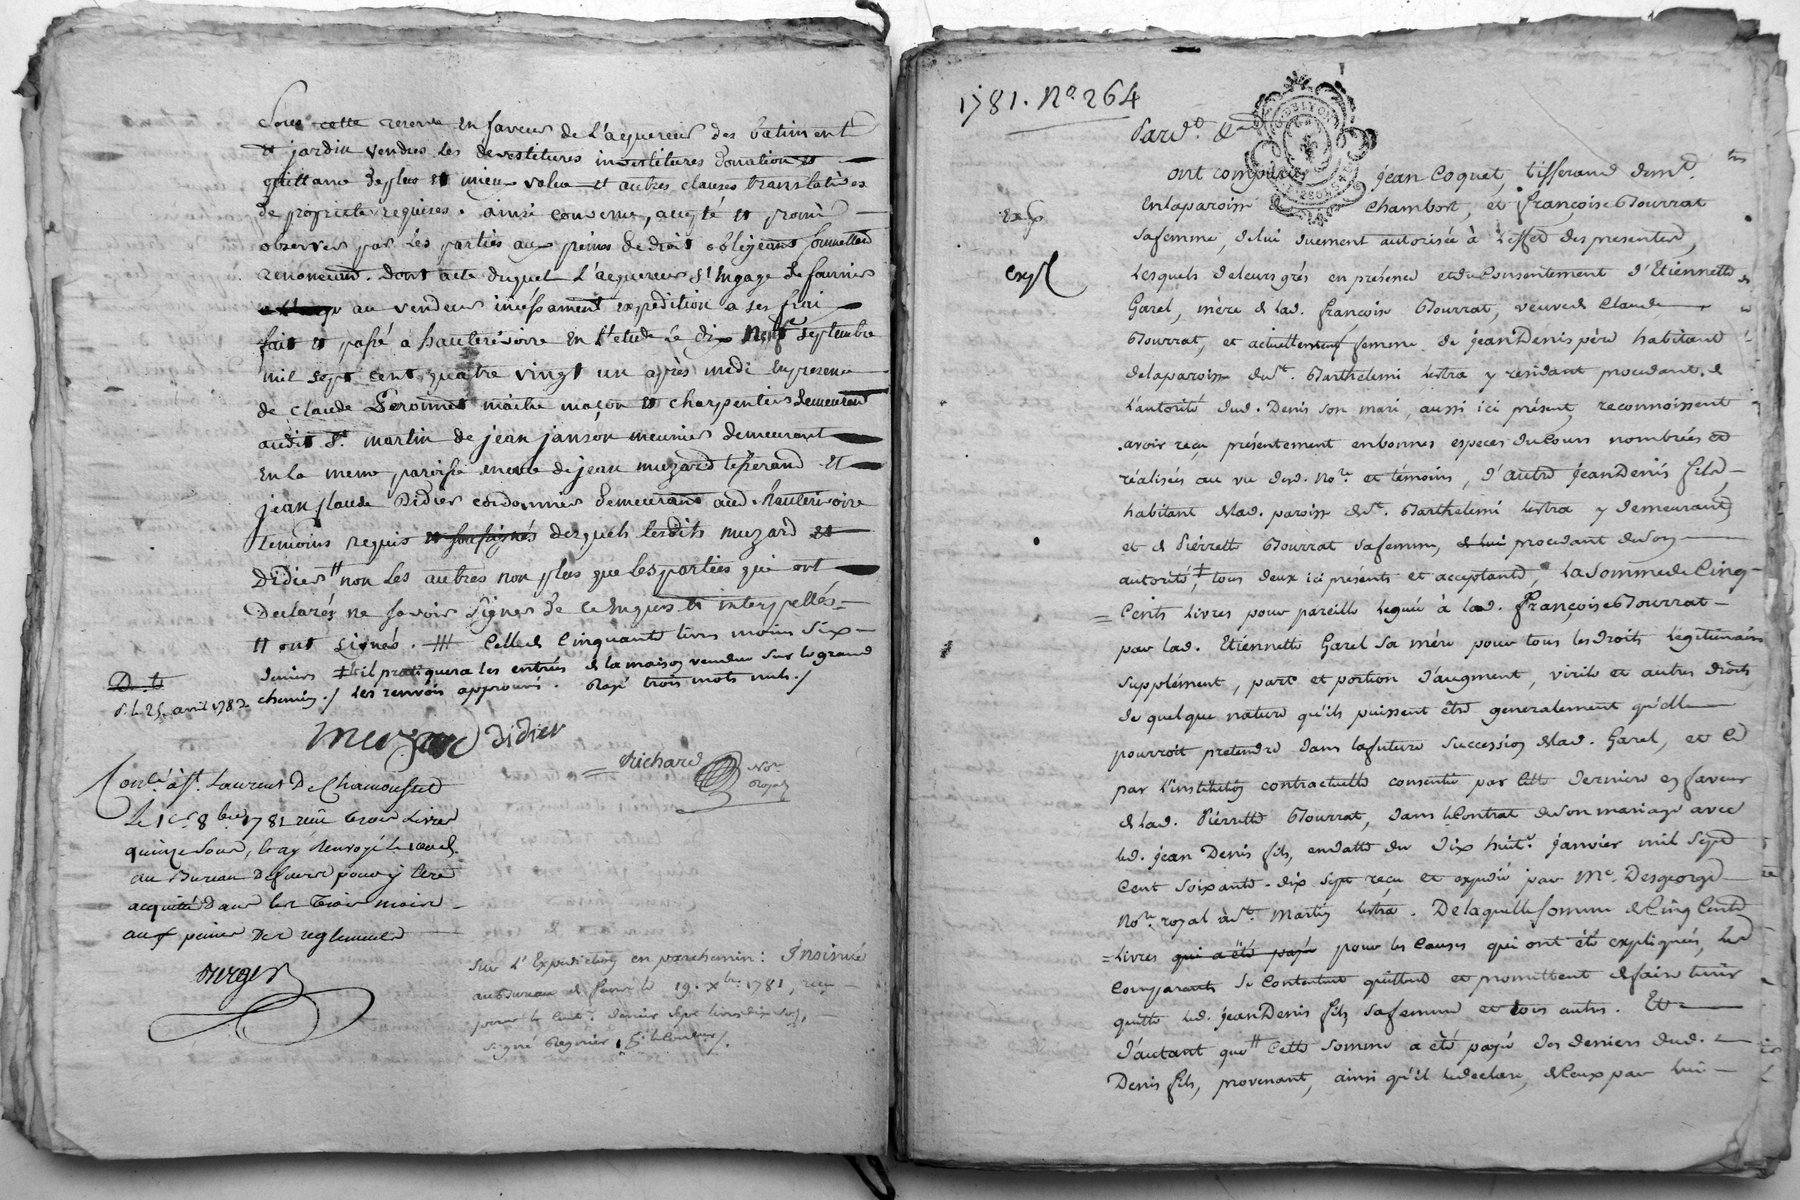 Sous cette reserve en faveur de l'aquereur des batiment
et jardin vendus les devestitures investitures donation et
quittance de plus et mieux value et autres clauses translatives
de propriete requises. ainsi convenu, accepté et promis
observer par les parties aux peines de droit obligeant soumettant
renoncant. dont acte duquel l'aquereur s'engage de fournir
au vendeur incessament expedition a ses frais
fait et passé a hauterivoire en l'etude le dix neuf septembre
mil sept cent quatre vingt un après midi en presence
de claude Peronnet maitre maçon et charpentier demeurant
audit St. martin de jean janson meunier demeurant
en la meme paroisse encore de jean muzard tisserand et
jean claude Didier cordonnier demeurant aud. hauterivoire
temoins requis et soussignés desquels lesdits muzard et
Didier non les autres non plus que les parties qui ont
Declarés ne savoir signer de ce enquis et interpellés
ont signés. Celle de Cinquante livres moins six
deniers il pratiquera les entrées de la maison vendue sur le grand
chemin ./ les renvois approuvés. Rayé trois mots nuls ./
D. t.
d. le 25 avril 1782
muzard Didier
Richard Nore
Royal
Conlé à St. Laurent De Chamousset
Le 1er 8bre 1781 reçu trois Livres
quinze sous, le ay renvoyé le
au Bureau de feurs pour y être
acquitté dans les trois mois
aux peines des reglements
Verger
Sur l'Expedition en parchemin : Insinué
au Bureau de feurs le 19. Xbre 1781, reçu
pour le Cent. denier sept livres dix sols,
signé Regnier
1781. No 264
Pardt.
ont comparus Jean Coquet, tisserand demt.
En la paroisse de Chambost, et françoise Bourrat
sa femme, de lui duement autorisée à l'effet des presentes,
Exp
Lesquels de leurs grés en présence et du Consentement d'Etiennette
Exp
Garel, mère de lad. françoise Bourrat, veuve de Claude
Bourrat, et actuellement femme de Jean Denis père habitant
de la paroisse de St. Barthelemi lestra y residant procedant de
l'autorité dud. Denis son mari, aussi ici présent, reconnoissent
avoir reçu présentement en bonnes especes du Cours nombrées et
réalisées au vu desd. Nore et témoins, d'autre Jean Denis fils,
habitant de lad. paroisse de St. Barthelemi lestra y demeurant,
et de Pierrette Bourrat sa femme, de lui procedant de son
autorité, tous deux ici présents et acceptants, la somme de Cinq
Cents livres pour pareille leguée à lad. Françoise Bourrat
par lad. Etiennette Garel sa mère pour tous les droits légitimaires
supplément, part et portion d'augment, virile et autres droits
de quelque nature qu'ils puissent être generalement qu'elle
pourroit pretendre dans la future succession de lad. Garel, et ce
par l'institution contractuelle consentie par cette derniere en faveur
de lad. Pierrette Bourrat, dans le Contrat de son mariage avec
led. Jean Denis fils, en datte du dix huit janvier mil sept
Cent soixante-dix sept reçu et expedié par Me. Desgeorge
Nore royal à St. Martin lestra. De laquelle somme de Cinq Cents
livres qui a été payé pour les causes qui ont été expliquées, les
Comparants se Contentent quittent et promettent de faire tenir
quitte led. Jean Denis fils, sa femme et tous autres. Et
d'autant que cette somme a été payé des deniers dud.
Denis fils, provenant, ainsi qu'il le declare, de Ceux par lui